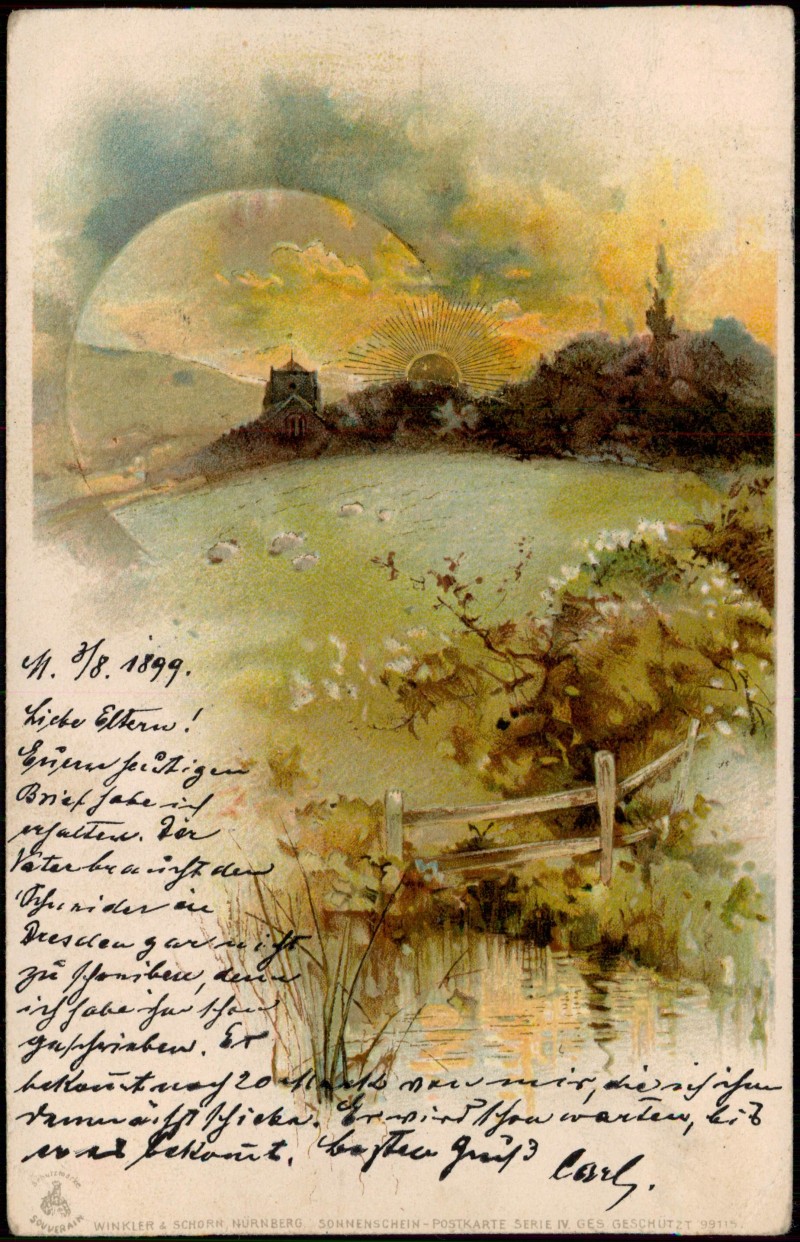 M. 3/8. 1899.
Liebe Eltern!
Euern heutigen
Brief habe ich
erhalten. Der
Vater braucht dem
Schneider in
Dresden gar nicht
zu schreiben, denn
ich habe ihm schon
geschrieben. Er
bekom̅t noch 20 Mark von mir, die ich ihm
demnächst schicke. Er wird schon warten, bis
er es bekom̅t. besten Gruß
Carl.
SOUVERAIN
WINKLER & SCHORN, NÜRNBERG. SONNENSCHEIN-POSTKARTE SERIE IV. GES. GESCHÜTZT 99115.